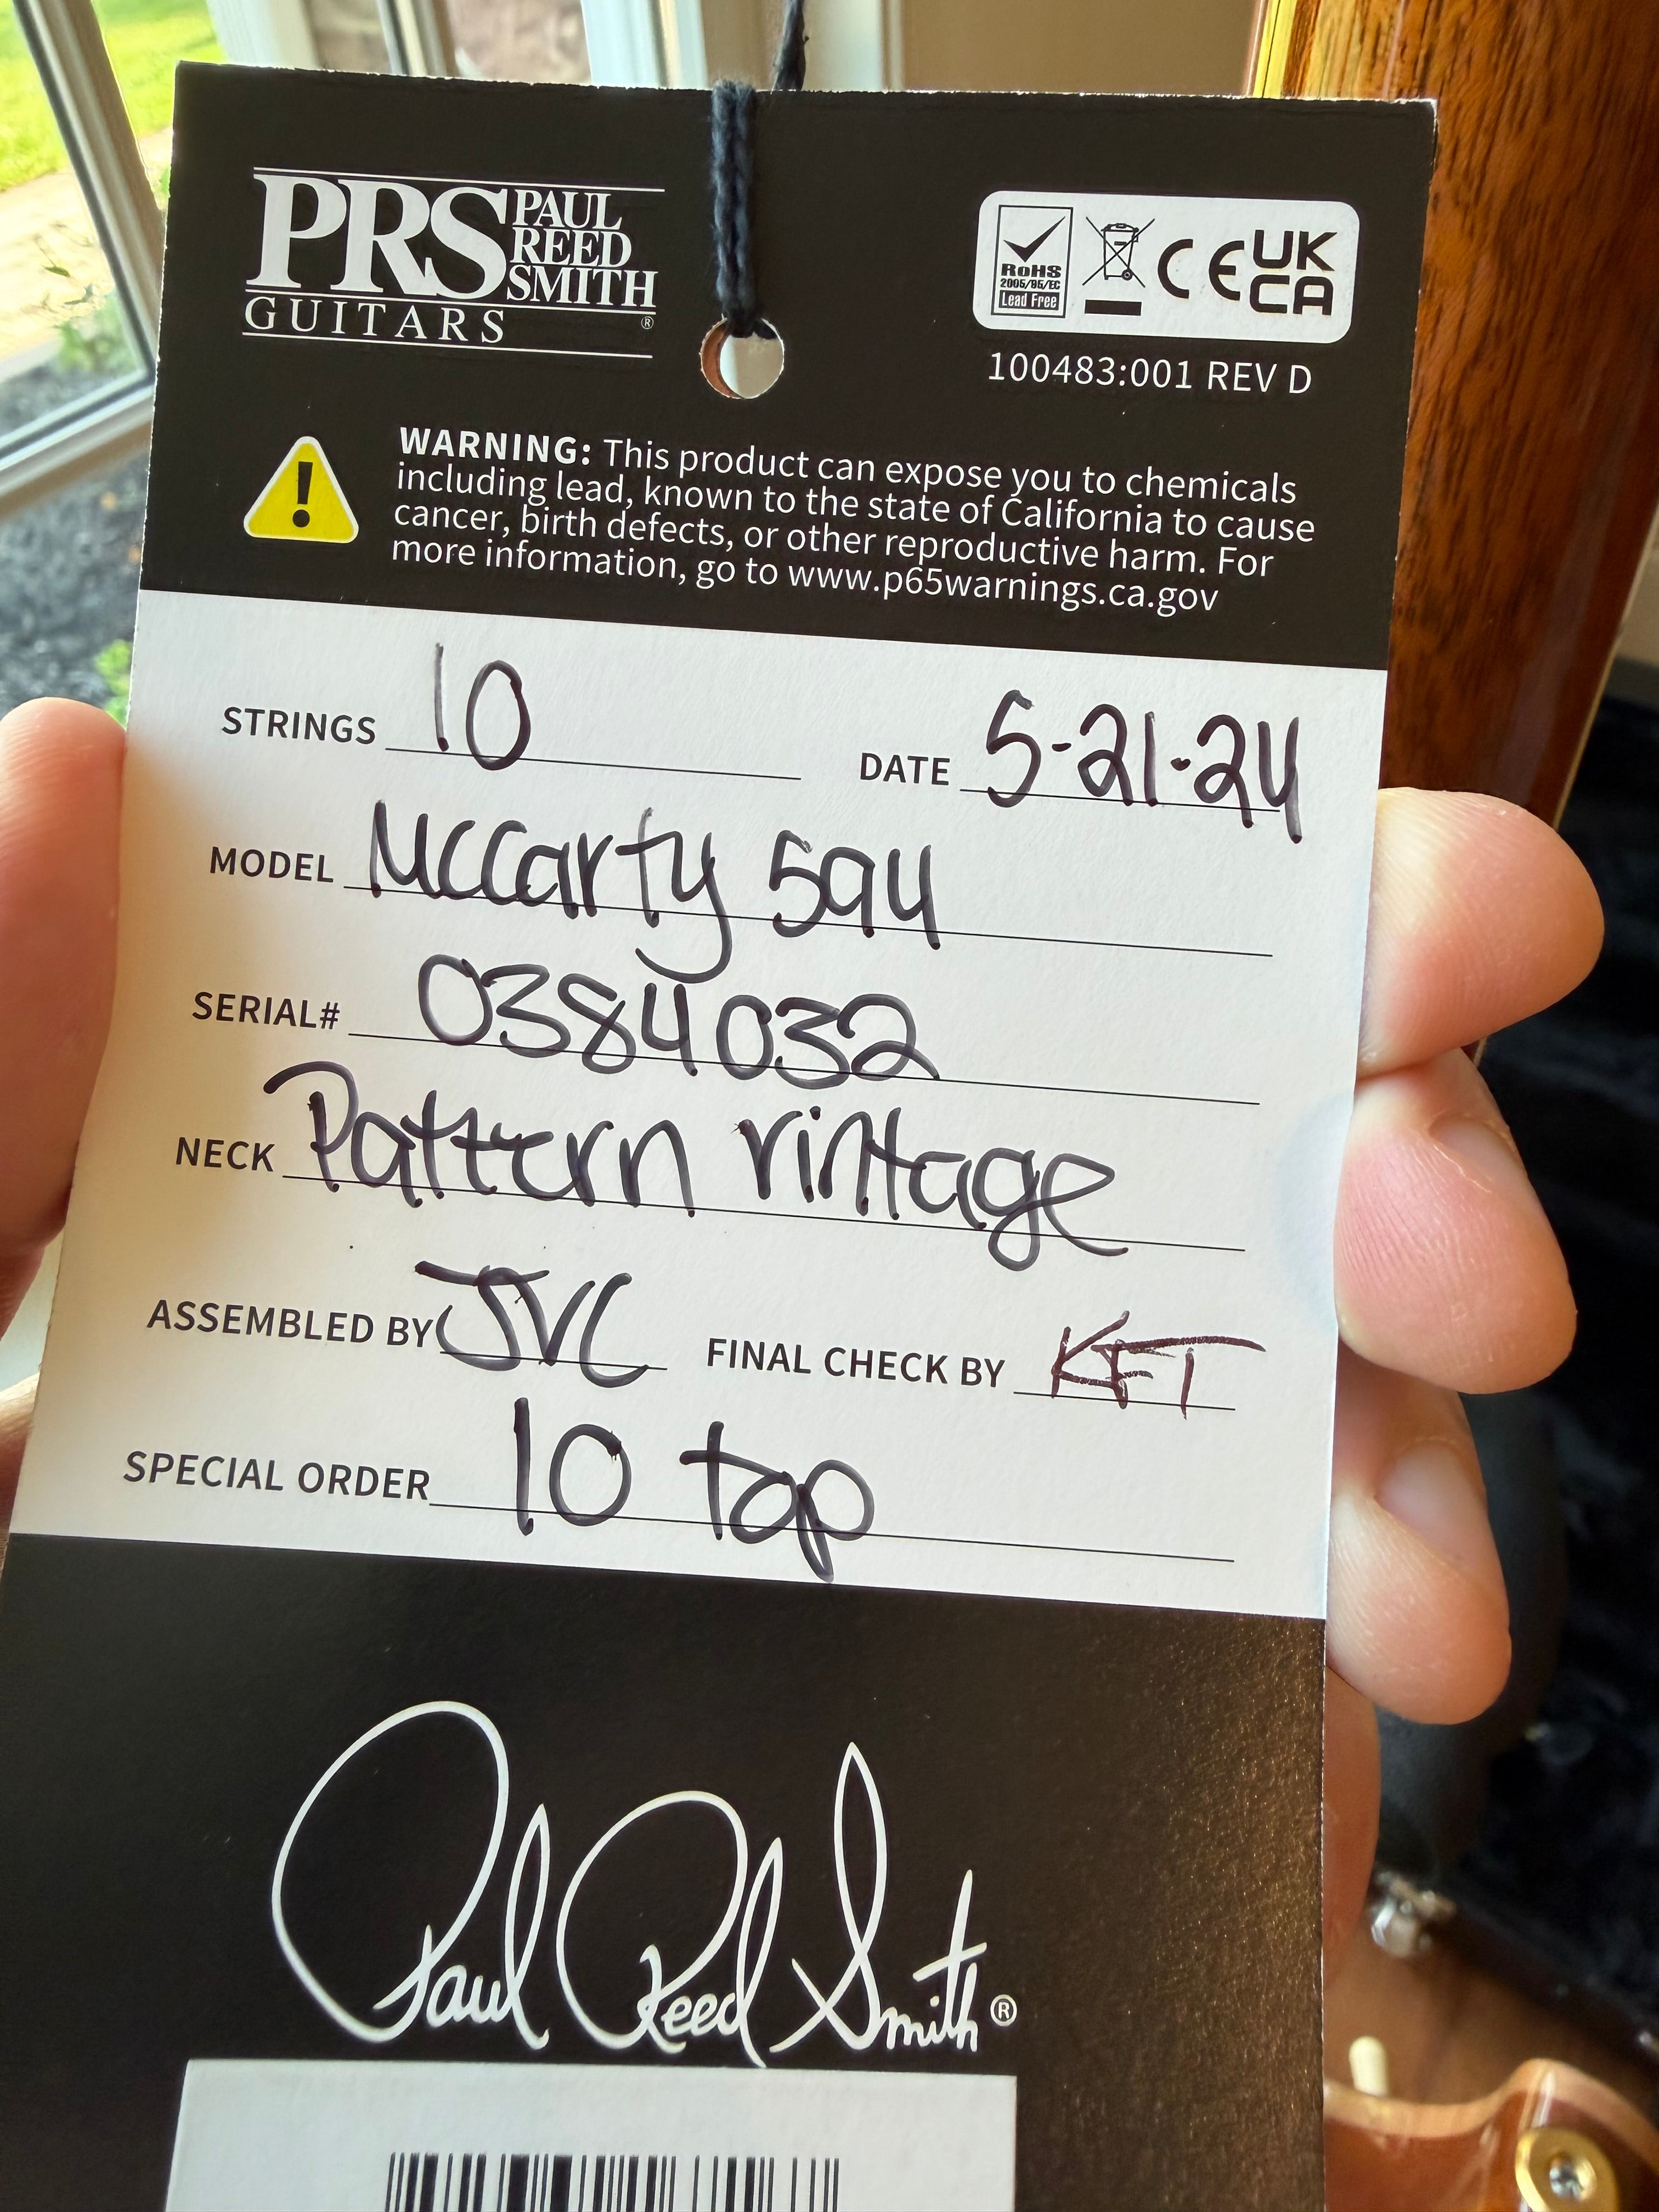 PRS PAUL REED SMITH
GUITARS ®
RoHS
2005/95/EC
Lead Free
CE UK CA
100483:001 REV D
WARNING: This product can expose you to chemicals
including lead, known to the state of California to cause
cancer, birth defects, or other reproductive harm. For
more information, go to www.p65warnings.ca.gov
STRINGS 10 DATE 5-21-24
MODEL McCarty 594
SERIAL# 0384032
NECK Pattern vintage
ASSEMBLED BY JVC FINAL CHECK BY KFT
SPECIAL ORDER 10 top
Paul Reed Smith ®